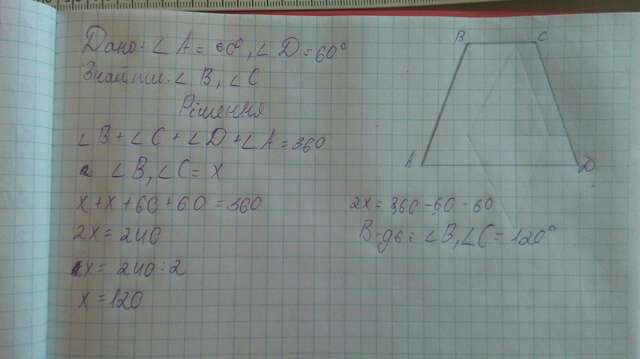 Дано: ∠A = 60°, ∠D = 60°
Знайти: ∠B, ∠C
Рішення
∠B + ∠C + ∠D + ∠A = 360
∠B, ∠C = x
x + x + 60 + 60 = 360
2x = 240
x = 240 : 2
x = 120
B C
A D
2x = 360 - 60 - 60
В-дь: ∠B, ∠C = 120°